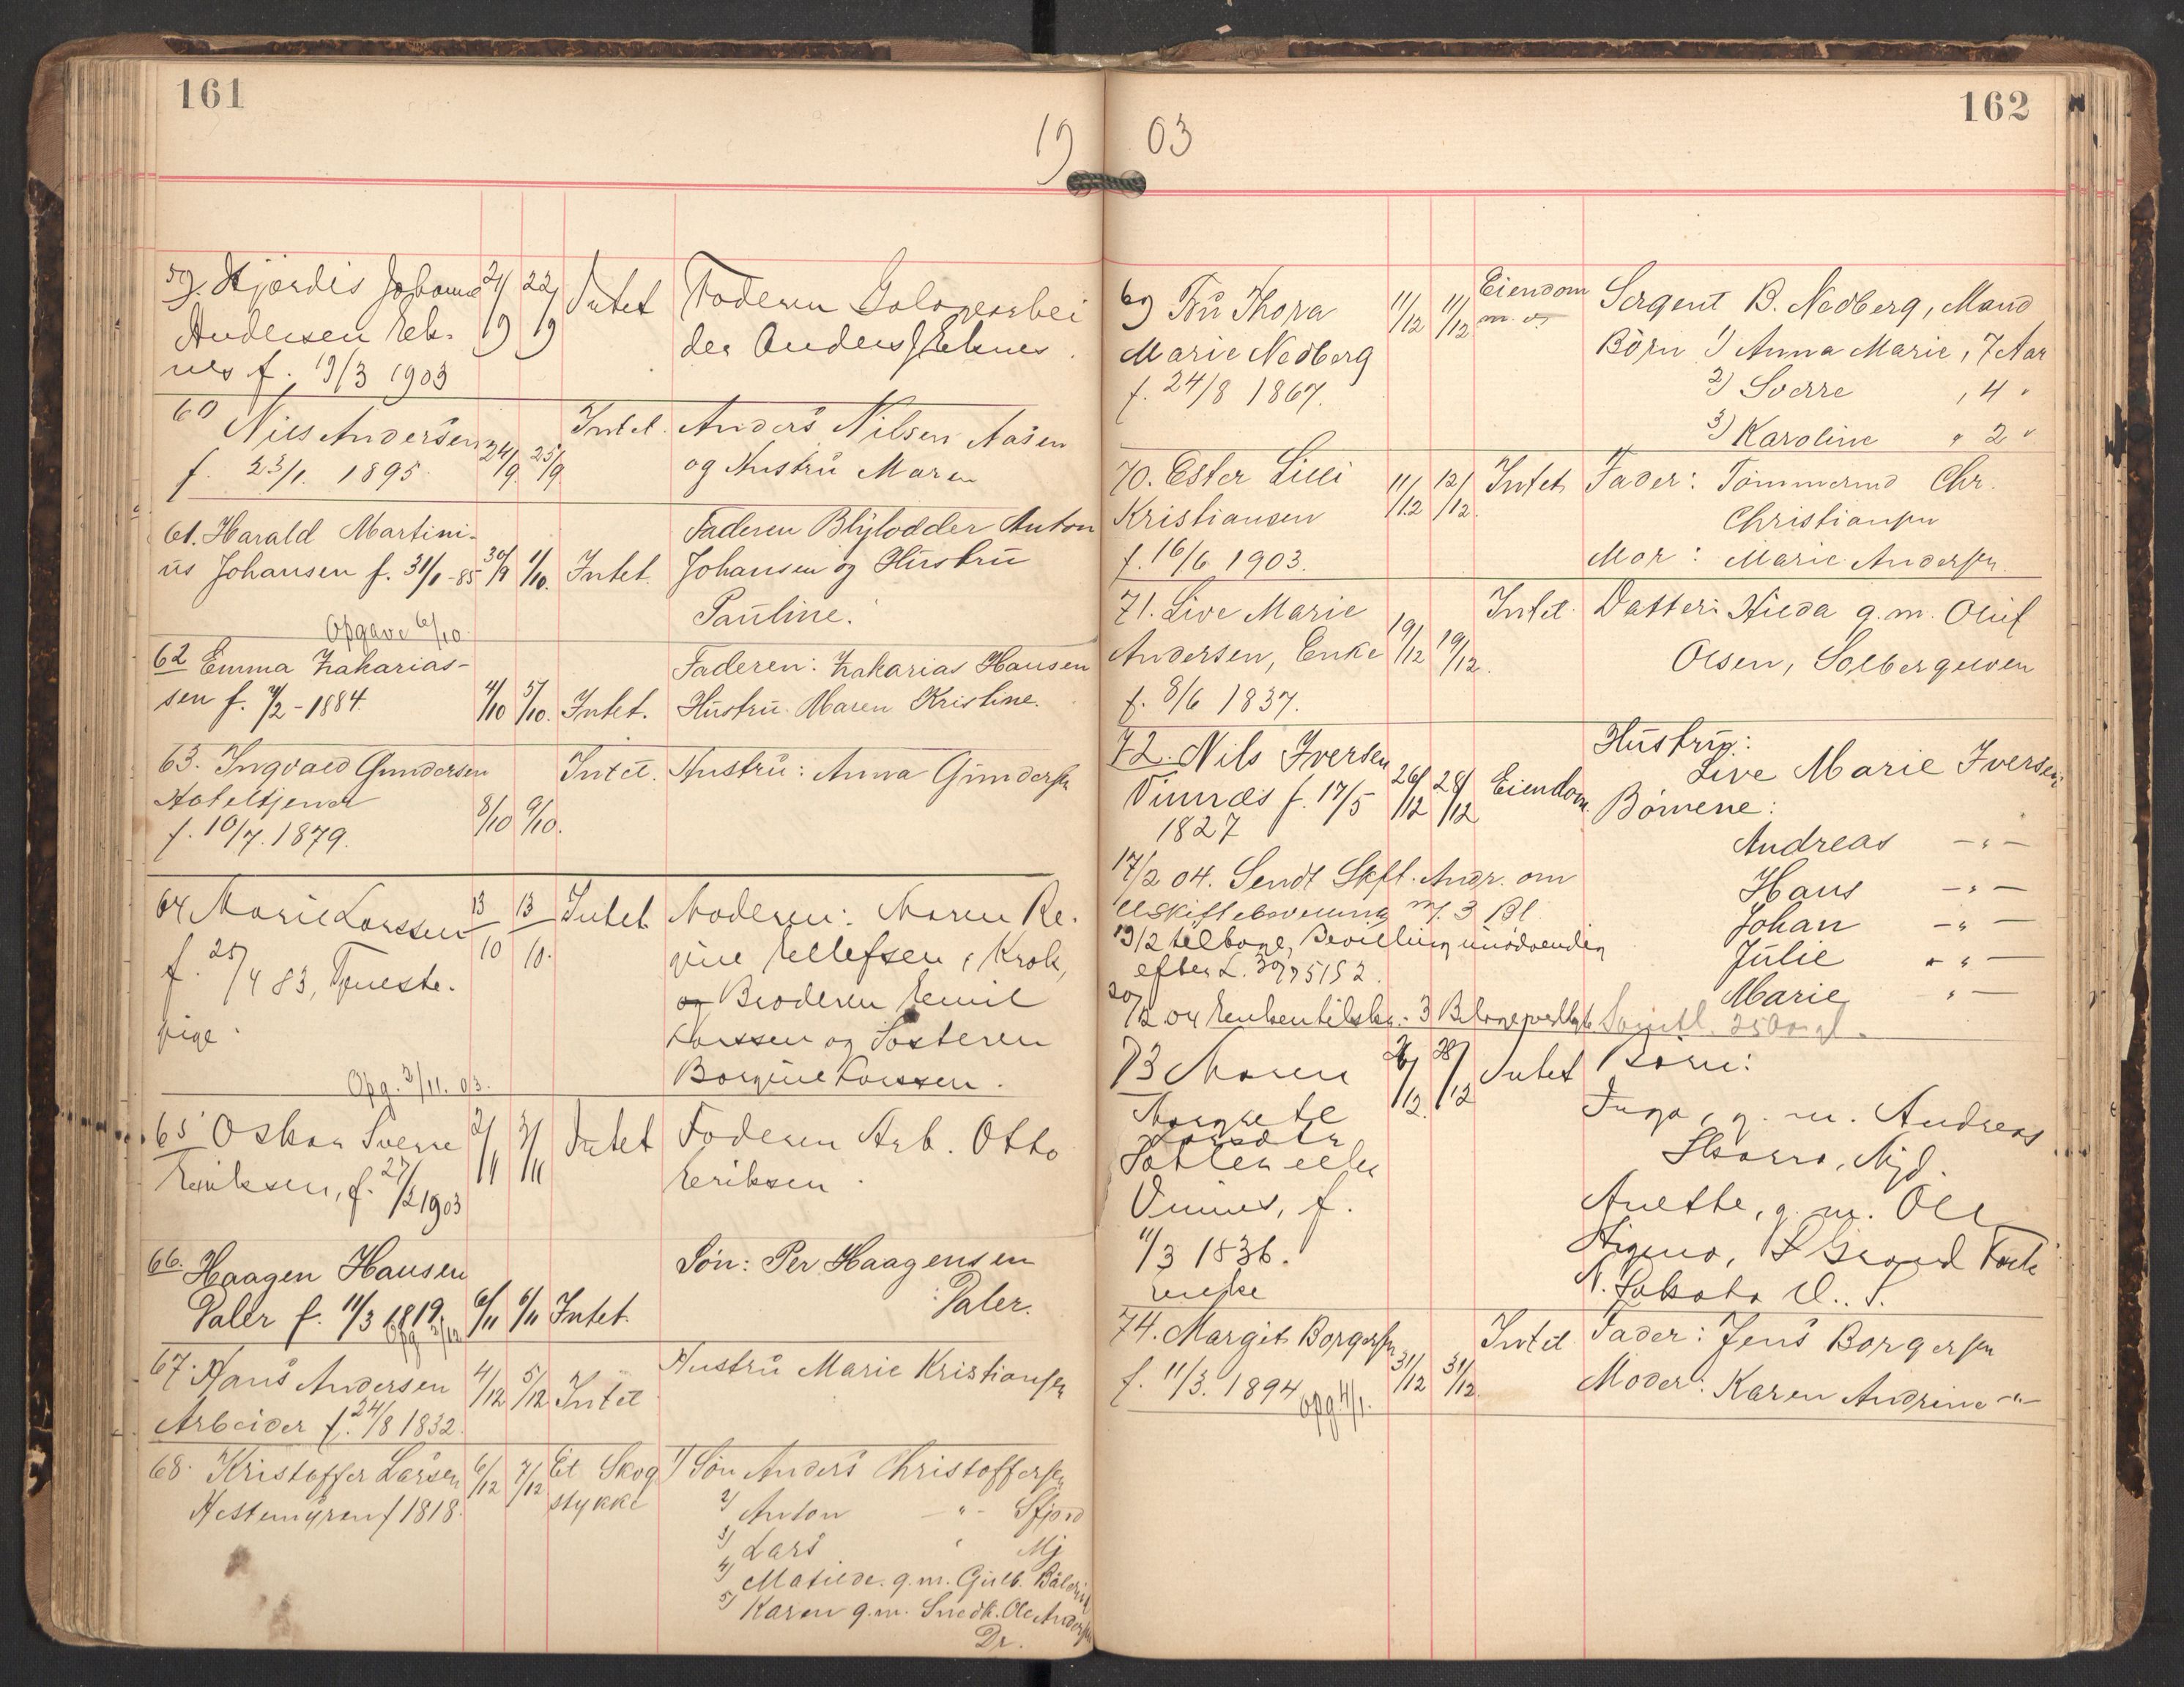 161
19 03
162
59. Hjördis Johanne 21/9 22/9 Intet Faderen Galoparbei
Andersen Ek- der Anders J Eknes.
nes f. 19/3 1903
60 Nils Andersen 24/9 25/9 Intet. Anders Nilsen Aasen
f. 23/1. 1895. og Hustru Maren
61. Harald Martini- Faderen Blylodder Anton
us Johansen f. 31/1-85 30/9 1/10. Intet. Johansen og Hustru
Pauline.
Opgave 6/10.
62 Emma Zakarias- Faderen: Zakarias Hansen
sen f. /2-1884. 4/10 5/10. Intet. Hustru Maren Kristine.
63. Ingvald Gundersen Intet. Hustru: Anna Gundersen
Hoteltjener 8/10 9/10.
f. 10/7. 1879.
64 Marie Larssen 13/10 13/10. Intet Moderen: Maren Re-
f. 25/4 83, Tjeneste- gine Ellefsen, Krok,
pige. og Broderen Emil
Larssen og Søsteren
Borgine Larssen.
Opg. 3/11. 03.
65 Oskar Sverre 2/11 3/11 Intet Faderen Arb. Otto
Eriksen, f. 27/2 1903 Eriksen.
66. Haagen Hansen Søn: Per Haagensen
Paler f. 11/3 1819. 6/11 6/11 Intet. Paler.
Opg 3/12
67. Hans Andersen 4/12 5/12 Intet Hustru Marie Kristiansen
Arbeider f. 24/8 1832.
68. Kristoffer Larsen 6/12 7/12 Et Skog 1) Søn Anders Christoffersen
Hestemyren f 1818. stykke 2) Anton -"- Sfjord
3) Lars " Mj
4) Matilde. g.m. Gulb.
5) Karen g.m. Snedk. Ole Andersen
Dr.
69 Fru Thora 11/12 11/12 Eiendom Sergent B. Nedberg, Mand
Marie Nedberg m. v. Börn 1) Anna Marie, 7 Aar
f. 24/8 1867. 2) Sverre , 4 "
3) Karoline " 2 "
70. Ester Lilli 11/12 12/12. Intet Fader: Tömmermd Chr.
Kristiansen Christiansen
f. 16/6 1903. Mor: Marie Andersen.
71. Live Marie Intet. Datter: Hilda g.m. Oluf
Andersen, Enke 19/12 19/12. Olsen, Solbergelven
f. 8/6 1837.
72. Nils Iversen 26/12 28/12 Eiendom. Hustru:
Vinnæs f. 17/5 Live Marie Iversen
1827 Börnene:
Andreas -"-
17/2 04. Sendt Skft. Andr. om Hans -"-
m/. 3 Bl. Johan -"-
19/2 tilbage, Bevilling unödvendig Julie "-
efter L. 30/7 51 § 2. Marie "-
20/2 04 3 Bilage vedlagt 2500
73 Maren 26/12. 28/12 Intet Börn:
Margrete Inga, g. m. Andreas
Larsdtr Skarra, Njd.
eller Anette, g. m. Ole
Vinnes, f. Grand Fork
11/3 1836. N. Dakota U. S.
enke
74. Margit Borgersen 31/12 31/12. Intet. Fader: Jens Borgersen
f. 11/3. 1894 Moder: Karen Andrine -"-
opg 4/1.